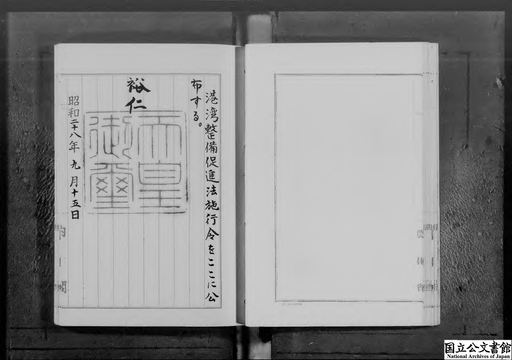 港湾整備促進法施行令をここに公
布する。
裕仁
天皇
御璽
昭和二十八年九月十五日
国立公文書館
National Archives of Japan